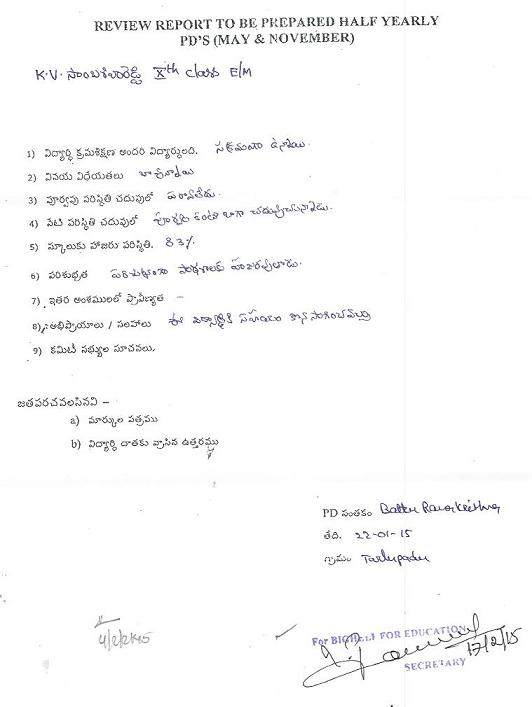 REVIEW REPORT TO BE PREPARED HALF YEARLY
PD'S (MAY & NOVEMBER)
K.V. సాంబశివారెడ్డి Xth class E/M
1) విద్యార్థి క్రమశిక్షణ అందరి విద్యార్థులది. సక్రమంగా ఉన్నాయి.
2) వినయ విధేయతలు బాగున్నాయి
3) పూర్వపు పరిస్థితి చదువులో పరవాలేదు.
4) నేటి పరిస్థితి చదువులో పూర్వం కంటే బాగా చదువుచున్నాడు.
5) స్కూలుకు హాజరు పరిస్థితి. 83%
6) పరిశుభ్రత పరిశుభ్రంగా పాఠశాలకు హాజరవుతారు.
7) ఇతర అంశములలో ప్రావీణ్యత –
8) అభిప్రాయాలు / సలహాలు ఈ విద్యార్థికి సహాయం కొనసాగించవచ్చు
9) కమిటీ సభ్యుల సూచనలు.
జతపరచవలసినవి –
a) మార్కుల పత్రము
b) విద్యార్థి దాతకు వ్రాసిన ఉత్తరము
PD సంతకం Battu
తేది. 22-01-15
గ్రామం Tarlupadu
For BIGHELP FOR EDUCATION
17/2/15
SECRETARY